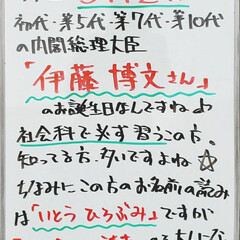 初代・第5代・第7代・第10代
の内閣総理大臣
「伊藤 博文さん」
のお誕生日なんですね♪
社会科で必ず習うこの方。
知ってる方、多いですよね☆
ちなみにこの方のお名前の読み
は「いとう ひろぶみ」ですが